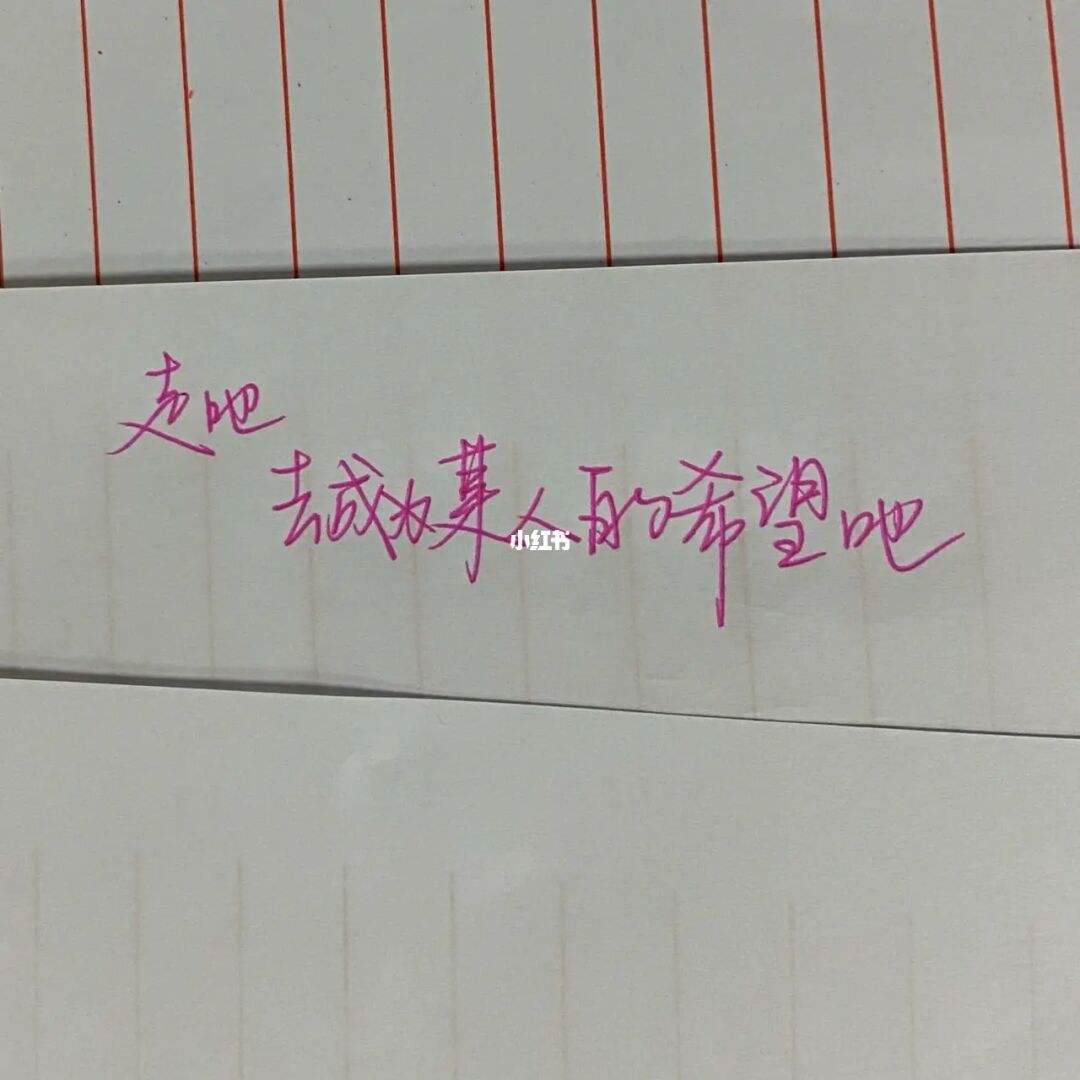 走吧
去成为某人的希望吧
小红书